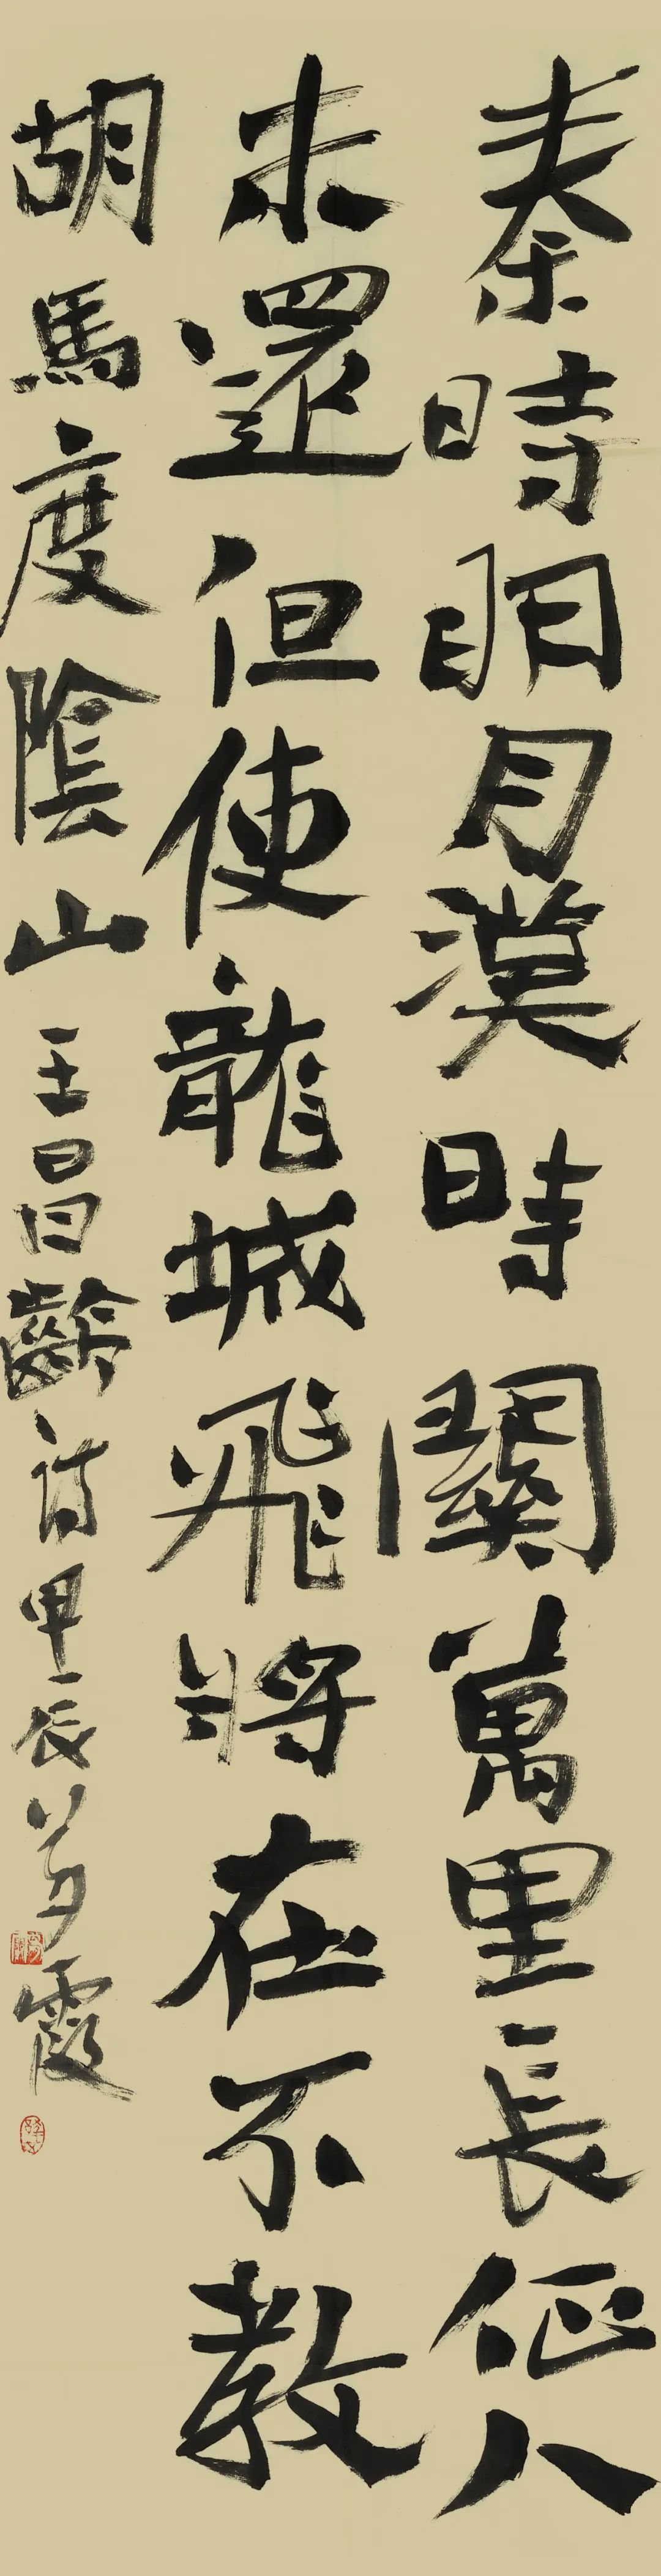 秦時明月漢時關萬里長征人
未還但使龍城飛將在不教
胡馬度陰山 王昌齡詩 甲辰 霞